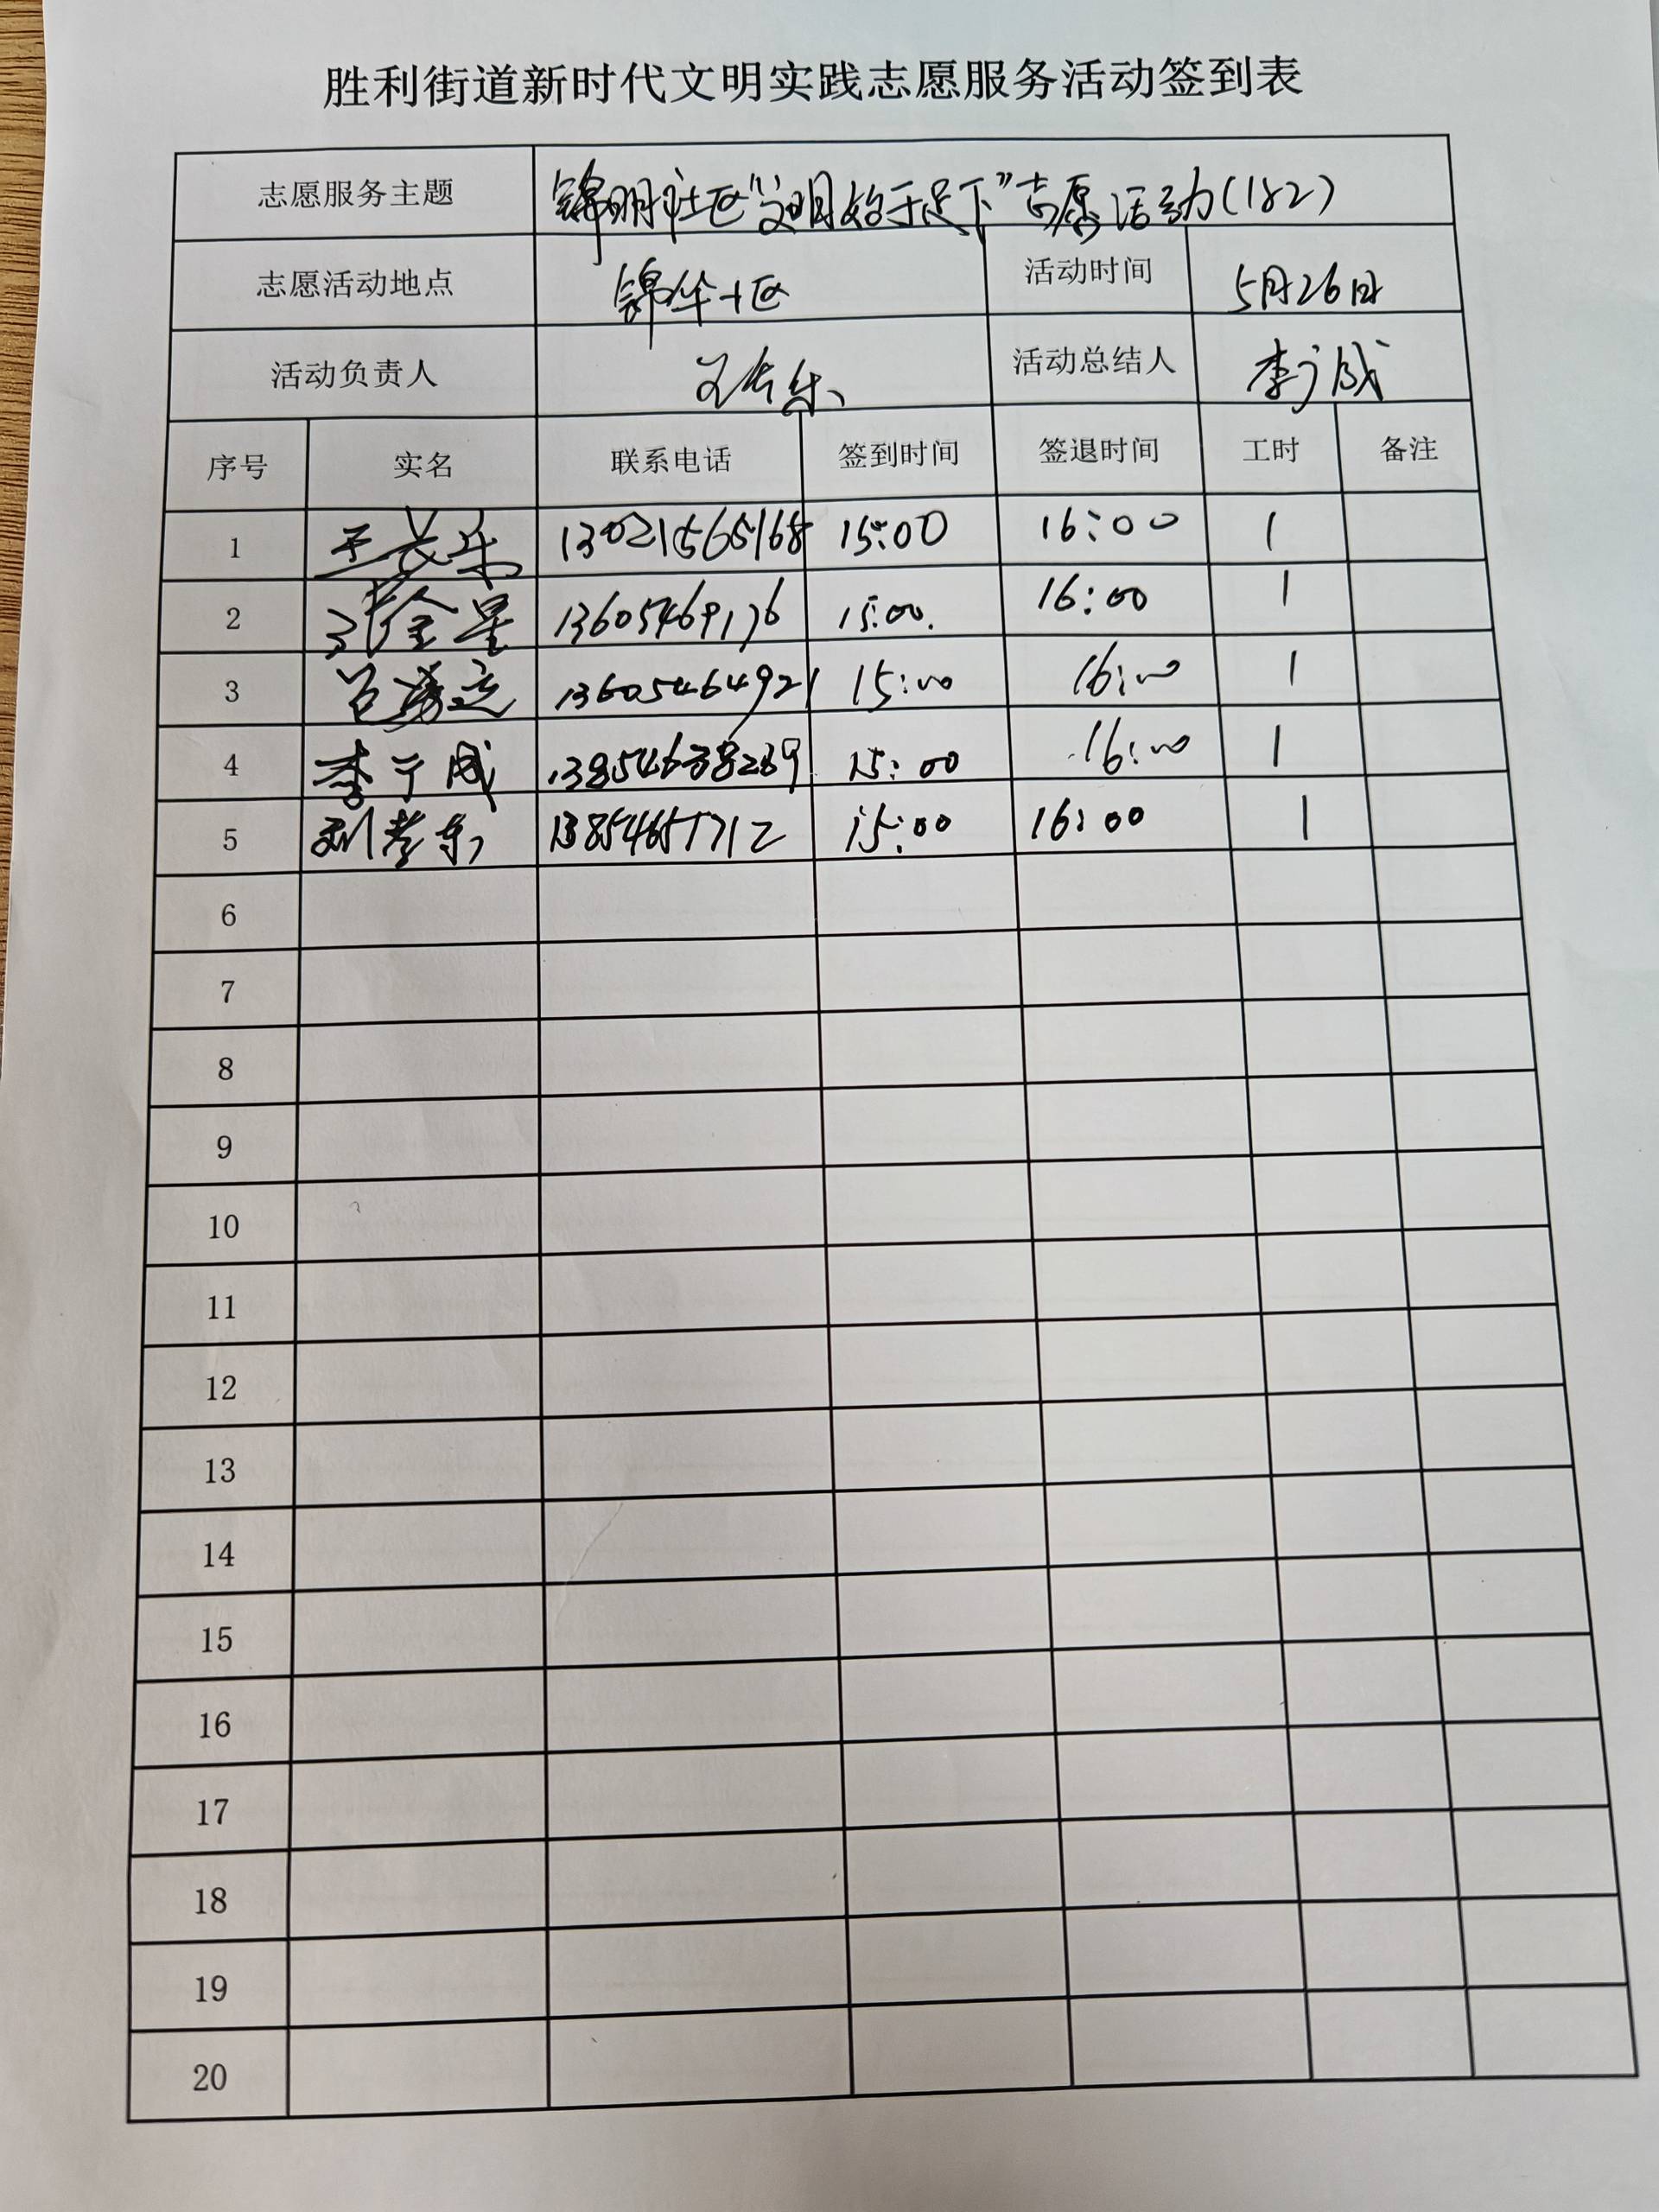 胜利街道新时代文明实践志愿服务活动签到表
志愿服务主题 锦明社区“文明始于足下”志愿活动(182)
志愿活动地点 锦华十区 活动时间 5月26日
活动负责人 王长乐 活动总结人 李广成
序号 实名 联系电话 签到时间 签退时间 工时 备注
1 王长乐 15:00 16:00 1
2 张金星 13605469176 15:00. 16:00 1
3 13605464921 15:00 16:00 1
4 李广成 13854638289 15:00 16:00 1
5 13854651712 15:00 16:00 1
6
7
8
9
10
11
12
13
14
15
16
17
18
19
20